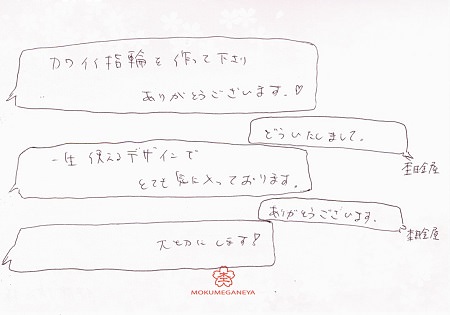 カワイイ指輪を作って下さり
ありがとうございます。♡
どういたしまして。
杢目金屋
一生使えるデザインで
とても気に入っております。
ありがとうございます。
杢目金屋
大切にします!
MOKUMEGANEYA